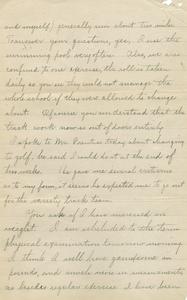 and myself) generally run about two miles.
To answer your questions, yes, I use the
swimming pool very often. Also, we are
confined to one exercise, the roll is taken
daily as you see they could not manage the
whole school if they were allowed to change
about. Of course you understand that the
track work now is out of doors entirely.
I spoke to Mr. about changing
to golf, he said I could do it at the end of
this week. He gave me several criticisms
as to my form, it seems he expected me to go out
for the varsity track team.
You ask if I have increased in
weight. I am scheduled to the term
physical examination tomorrow morning.
I think I will have gained some in
pounds, and much more in measurements,
as besides regular exercise I have been